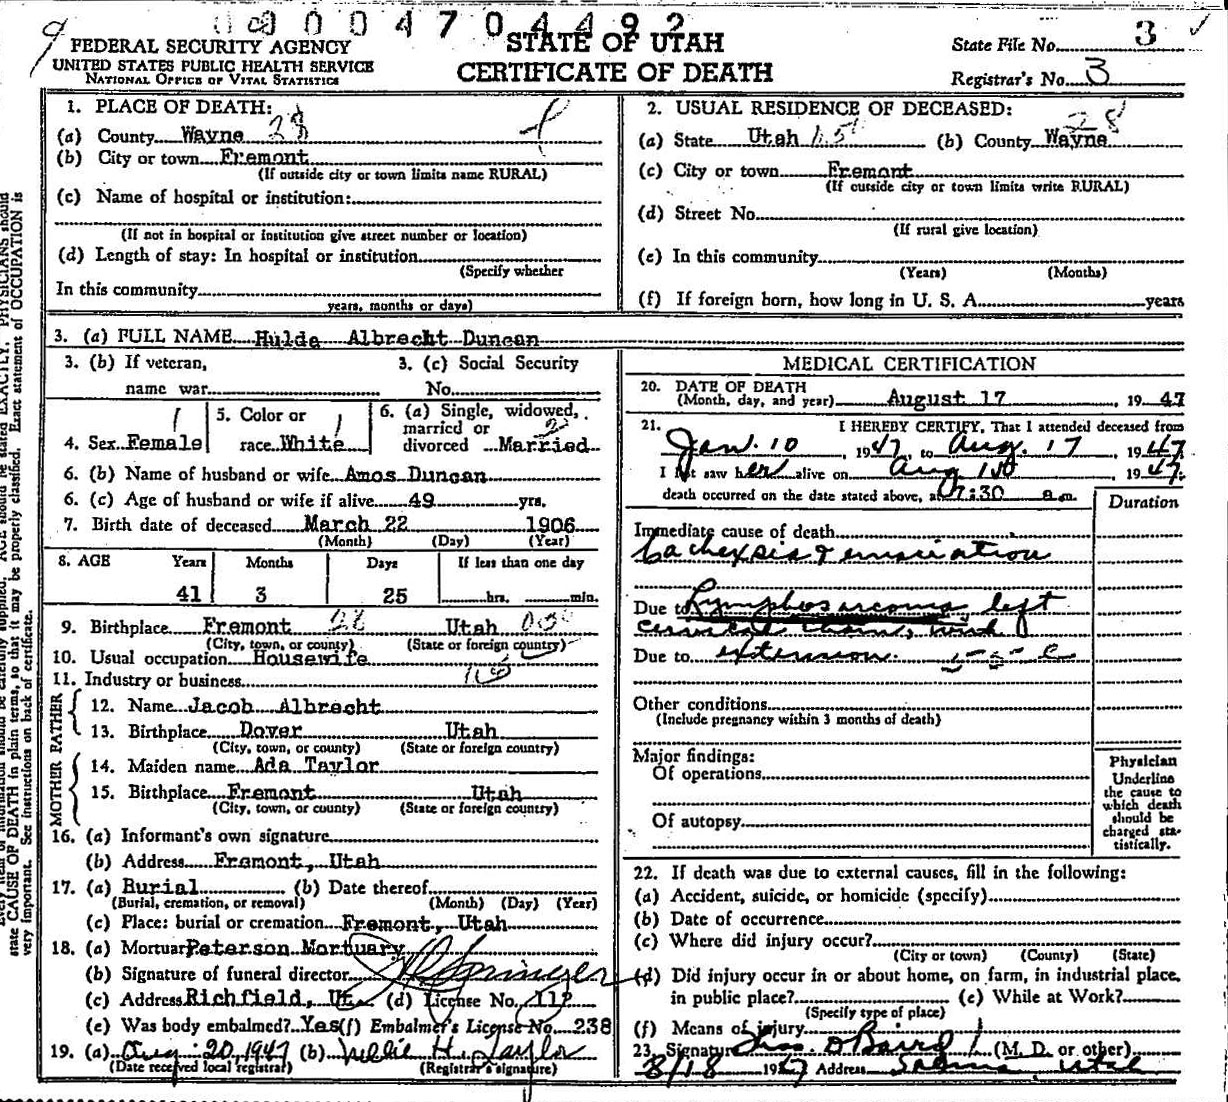 0 0 0 4 7 0 4 4 9 2
9
FEDERAL SECURITY AGENCY
UNITED STATES PUBLIC HEALTH SERVICE
NATIONAL OFFICE OF VITAL STATISTICS
STATE OF UTAH
CERTIFICATE OF DEATH
State File No. 3
Registrar's No. 3
1. PLACE OF DEATH:
(a) County Wayne 28
(b) City or town Fremont
(If outside city or town limits name RURAL)
(c) Name of hospital or institution:
(If not in hospital or institution give street number or location)
(d) Length of stay: In hospital or institution
(Specify whether
In this community
years, months or days)
2. USUAL RESIDENCE OF DECEASED:
28
(a) State Utah (b) County Wayne
(c) City or town Fremont
(If outside city or town limits write RURAL)
(d) Street No.
(If rural give location)
(e) In this community
(Years) (Months)
(f) If foreign born, how long in U. S. A. years
3. (a) FULL NAME Hulda Albrecht Duncan
3. (b) If veteran,
name war
3. (c) Social Security
No.
4. Sex Female
5. Color or
race White
6. (a) Single, widowed,
married or
divorced Married
6. (b) Name of husband or wife Amos Duncan
6. (c) Age of husband or wife if alive 49 yrs.
7. Birth date of deceased March 22 1906
(Month) (Day) (Year)
8. AGE Years Months Days If less than one day
41 3 25 hrs. min.
9. Birthplace Fremont Utah
(City, town, or county) (State or foreign country)
10. Usual occupation Housewife
11. Industry or business
FATHER
12. Name Jacob Albrecht
13. Birthplace Dover Utah
(City, town, or county) (State or foreign country)
MOTHER
14. Maiden name Ada Taylor
15. Birthplace Fremont Utah
(City, town, or county) (State or foreign country)
16. (a) Informant's own signature
(b) Address Fremont, Utah
17. (a) Burial (b) Date thereof
(Burial, cremation, or removal) (Month) (Day) (Year)
(c) Place: burial or cremation Fremont, Utah
18. (a) Mortuary Peterson Mortuary
(b) Signature of funeral director Springer
(c) Address Richfield, Ut. (d) License No. 112
(e) Was body embalmed? Yes (f) Embalmer's License No. 238
19. (a) Aug 20, 1947 (b) Nellie H. Taylor
(Date received local registrar) (Registrar's signature)
MEDICAL CERTIFICATION
20. DATE OF DEATH
(Month, day, and year) August 17, 1947
21. I HEREBY CERTIFY, That I attended deceased from
Jan. 10, 1947, to Aug. 17, 1947
I last saw her alive on Aug 1947.
death occurred on the date stated above, at 7:30 a.m.
Duration
Immediate cause of death
Cachexsia & emaciation
Due to Lymphosarcoma left
cervical chain, with
Due to extension.
Other conditions
(Include pregnancy within 3 months of death)
Major findings:
Of operations
Of autopsy
Physician
Underline
the cause to
which death
should be
charged sta-
tistically.
22. If death was due to external causes, fill in the following:
(a) Accident, suicide, or homicide (specify)
(b) Date of occurrence
(c) Where did injury occur?
(City or town) (County) (State)
(d) Did injury occur in or about home, on farm, in industrial place,
in public place? (e) While at Work?
(Specify type of place)
(f) Means of injury
23. Signature (M. D. or other)
8/18 1947 Address Salina, Utah
state CAUSE OF DEATH in plain terms, so that it may be properly classified. Exact statement of OCCUPATION is
very important. See instructions on back of certificate.